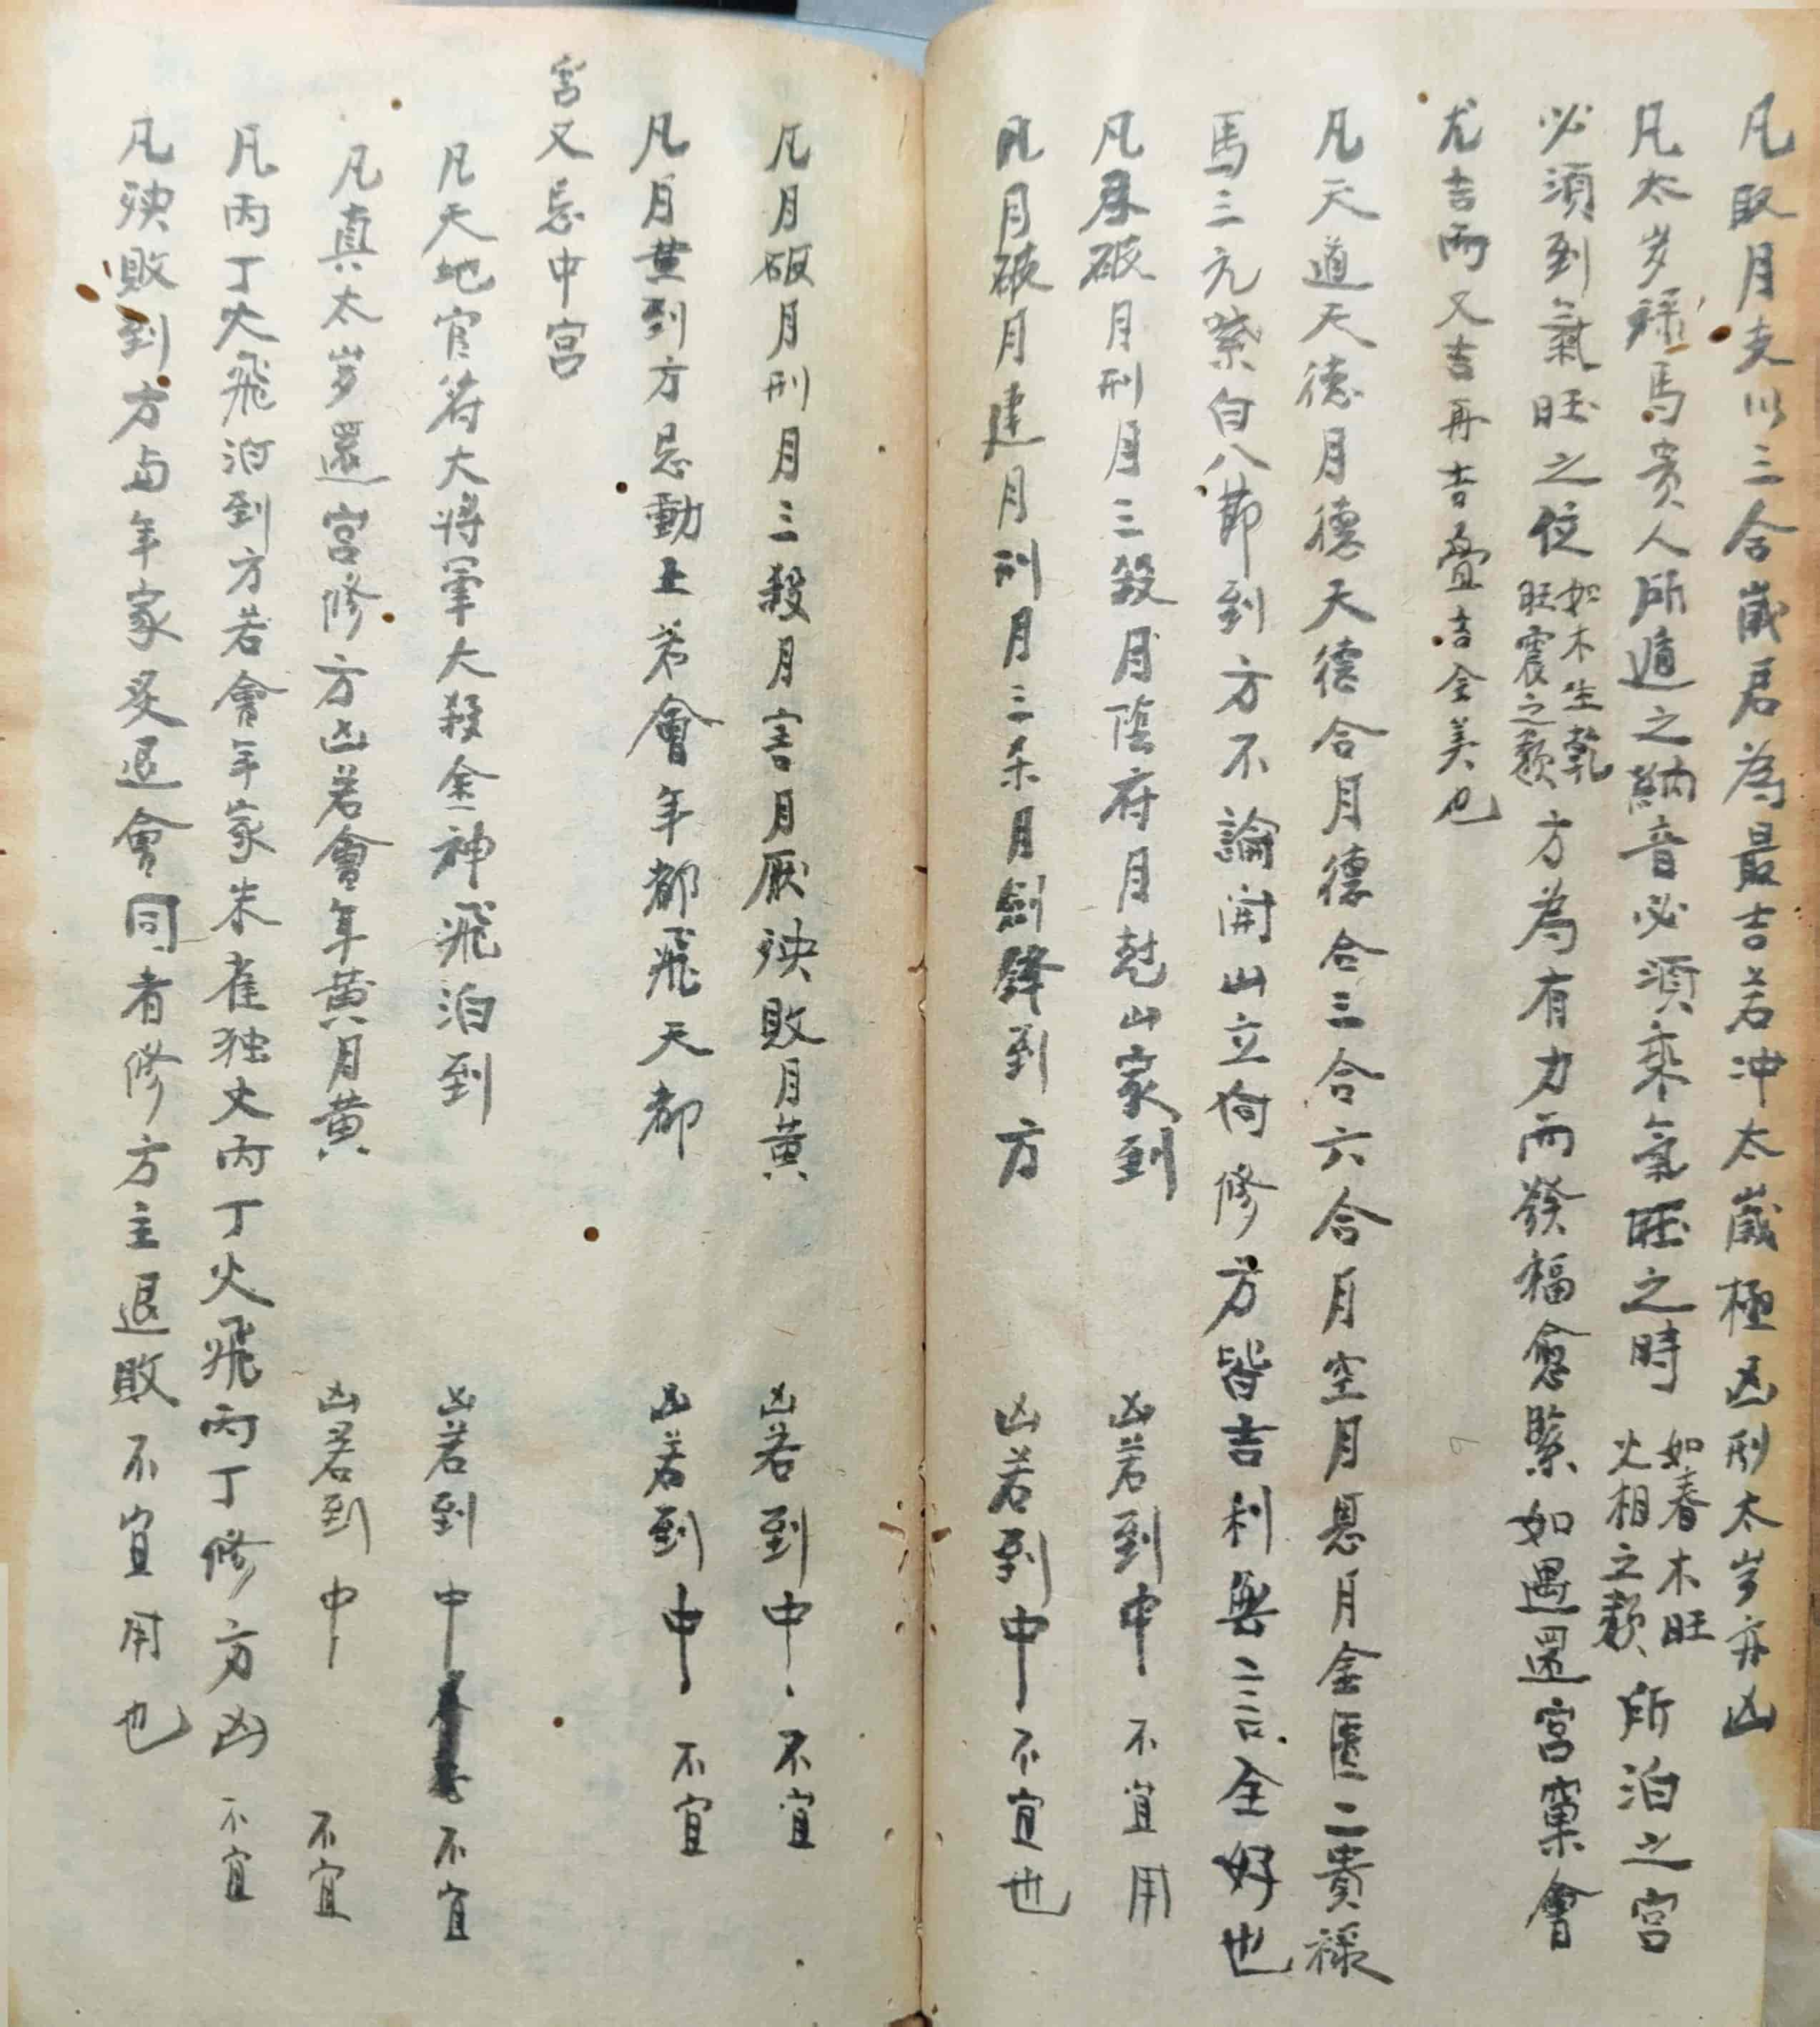 凡取月支以三合歲君為最吉若冲太歲極凶刑太岁亦凶
凡太岁禄馬贵人所遁之納音必須乘氣旺之時如春木旺火相之類所泊之宫
必須到氣旺之位如木生乾旺震之類方為有力而發福愈緊如遇還宫窠會
尤吉而又吉再吉叠吉全美也
凡天道天德月德天德合月德合三合六合月空月恩月金匱二貴禄
馬三元紫白八節到方不論開山立向修方皆吉利無二言全好也
凡月破月刑月三殺月陰府月尅山家到 凶若到中不宜用
凡月破月建月刑月三杀月劍鋒到方 凶若到中不宜也
凡月破月刑月三殺月害月厭殃敗月黄 凶若到中不宜
凡月黄到方忌動土若會年都飛天都 凶若到中不宜
宫又忌中宫
凡天地官符大將軍大殺金神飛泊到 凶若到中不宜
凡真太岁還宫修方凶若會年黄月黄 凶若到中不宜
凡丙丁火飛泊到方若會年家朱雀独火丙丁火飛丙丁修方凶不宜
凡殃敗到方与年家炙退會同者修方主退敗不宜用也